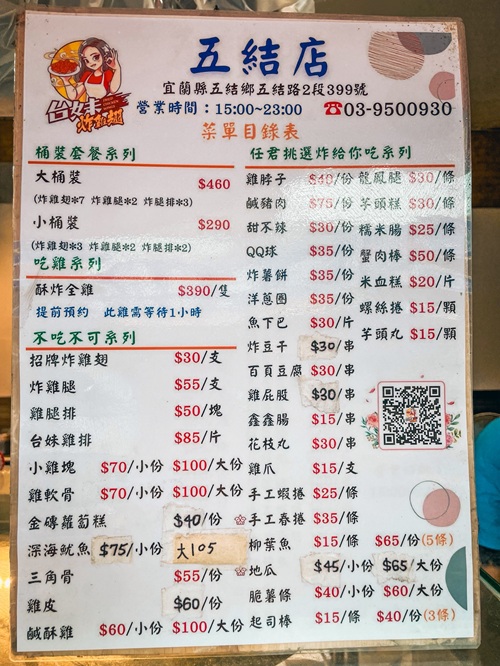 台妹
炸雞翅
五結店
宜蘭縣五結鄉五結路2段399號
營業時間：15:00~23:00 ☎03-9500930
菜單目錄表
桶裝套餐系列
大桶裝 $460
(炸雞翅*7 炸雞腿*2 炸腿排*3)
小桶裝 $290
(炸雞翅*3 炸雞腿*2 炸腿排*2)
吃雞系列
酥炸全雞 $390/隻
提前預約 此雞需等待1小時
不吃不可系列
招牌炸雞翅 $30/支
炸雞腿 $55/支
雞腿排 $50/塊
台妹雞排 $85/片
小雞塊 $70/小份 $100/大份
雞軟骨 $70/小份 $100/大份
金磚蘿蔔糕 $40/份
深海魷魚 $75/小份 大105
三角骨 $55/份
雞皮 $60/份
鹹酥雞 $60/小份 $100/大份
任君挑選炸給你吃系列
雞脖子 $40/份
鹹豬肉 $75/份
甜不辣 $30/份
QQ球 $35/份
炸薯餅 $35/份
洋蔥圈 $35/份
魚下巴 $30/片
炸豆干 $30/串
百頁豆腐 $30/串
雞屁股 $30/串
鑫鑫腸 $15/串
花枝丸 $30/串
雞爪 $15/支
手工蝦捲 $25/條
手工春捲 $35/條
柳葉魚 $15/條 $65/份(5條)
地瓜 $45/小份 $65/大份
脆薯條 $40/小份 $60/大份
起司棒 $15/條 $40/份(3條)
龍鳳腿 $30/條
芋頭糕 $30/條
糯米腸 $25/條
蟹肉棒 $50/條
米血糕 $20/片
螺絲捲 $15/顆
芋頭丸 $15/顆